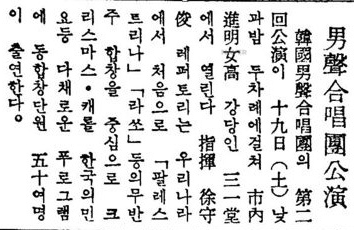 男聲合唱團公演
韓國男聲合唱團의 第二
回公演이 十九日(土) 낮
과밤 두차례에걸쳐 市內
進明女高 강당인 三一堂
에서 열린다 指揮 徐守
俊 레퍼토리는 우리나라
에서 처음으로 「팔레스
트리나」「라쏘」등의무반
주 합창을 중심으로 크
리스마스·캐롤 한국의민
요등 다채로운 푸로그램
에 동합창단원 五十여명
이 출연한다。